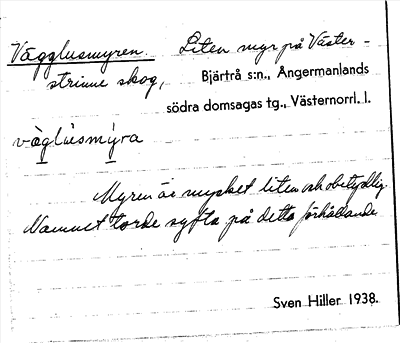 Vägglusmyren. Liten myr på Väster-
strinne skog, Bjärtrå s:n., Ångermanlands
södra domsagas tg., Västernorrl. l.
vàglúsmýra
Myren är mycket liten och obetydlig.
Namnet torde syfta på detta förhållande.
Sven Hiller 1938.